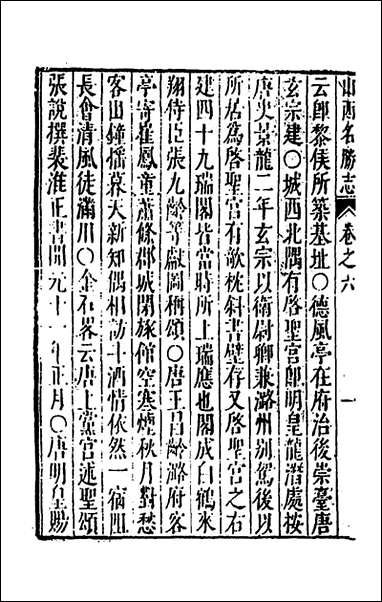 山西名勝志 卷之六 一
云郎黎侯所築基址〇德風亭在府治後崇臺唐
玄宗建〇城西北隅有啓聖宮郎明皇龍潛處按
唐史景龍二年玄宗以衛尉卿兼潞州別駕後以
所居爲啓聖宮有欹枕斜書壁存又啓聖宮之右
建四十九瑞閣皆當時所上瑞應也閣成白鶴來
翔侍臣張九齡等獻圖稱頌〇唐王昌齡潞府客
亭寄崔鳳童蕭條郡城閉旅館空寒煙秋月對愁
客山鐘搖暮天新知偶相訪斗酒情依然一宿阻
長會清風徒滿川〇金石畧云唐上黨宮述聖頌
張說撰裴漼正書開元十一年正月〇唐明皇賜